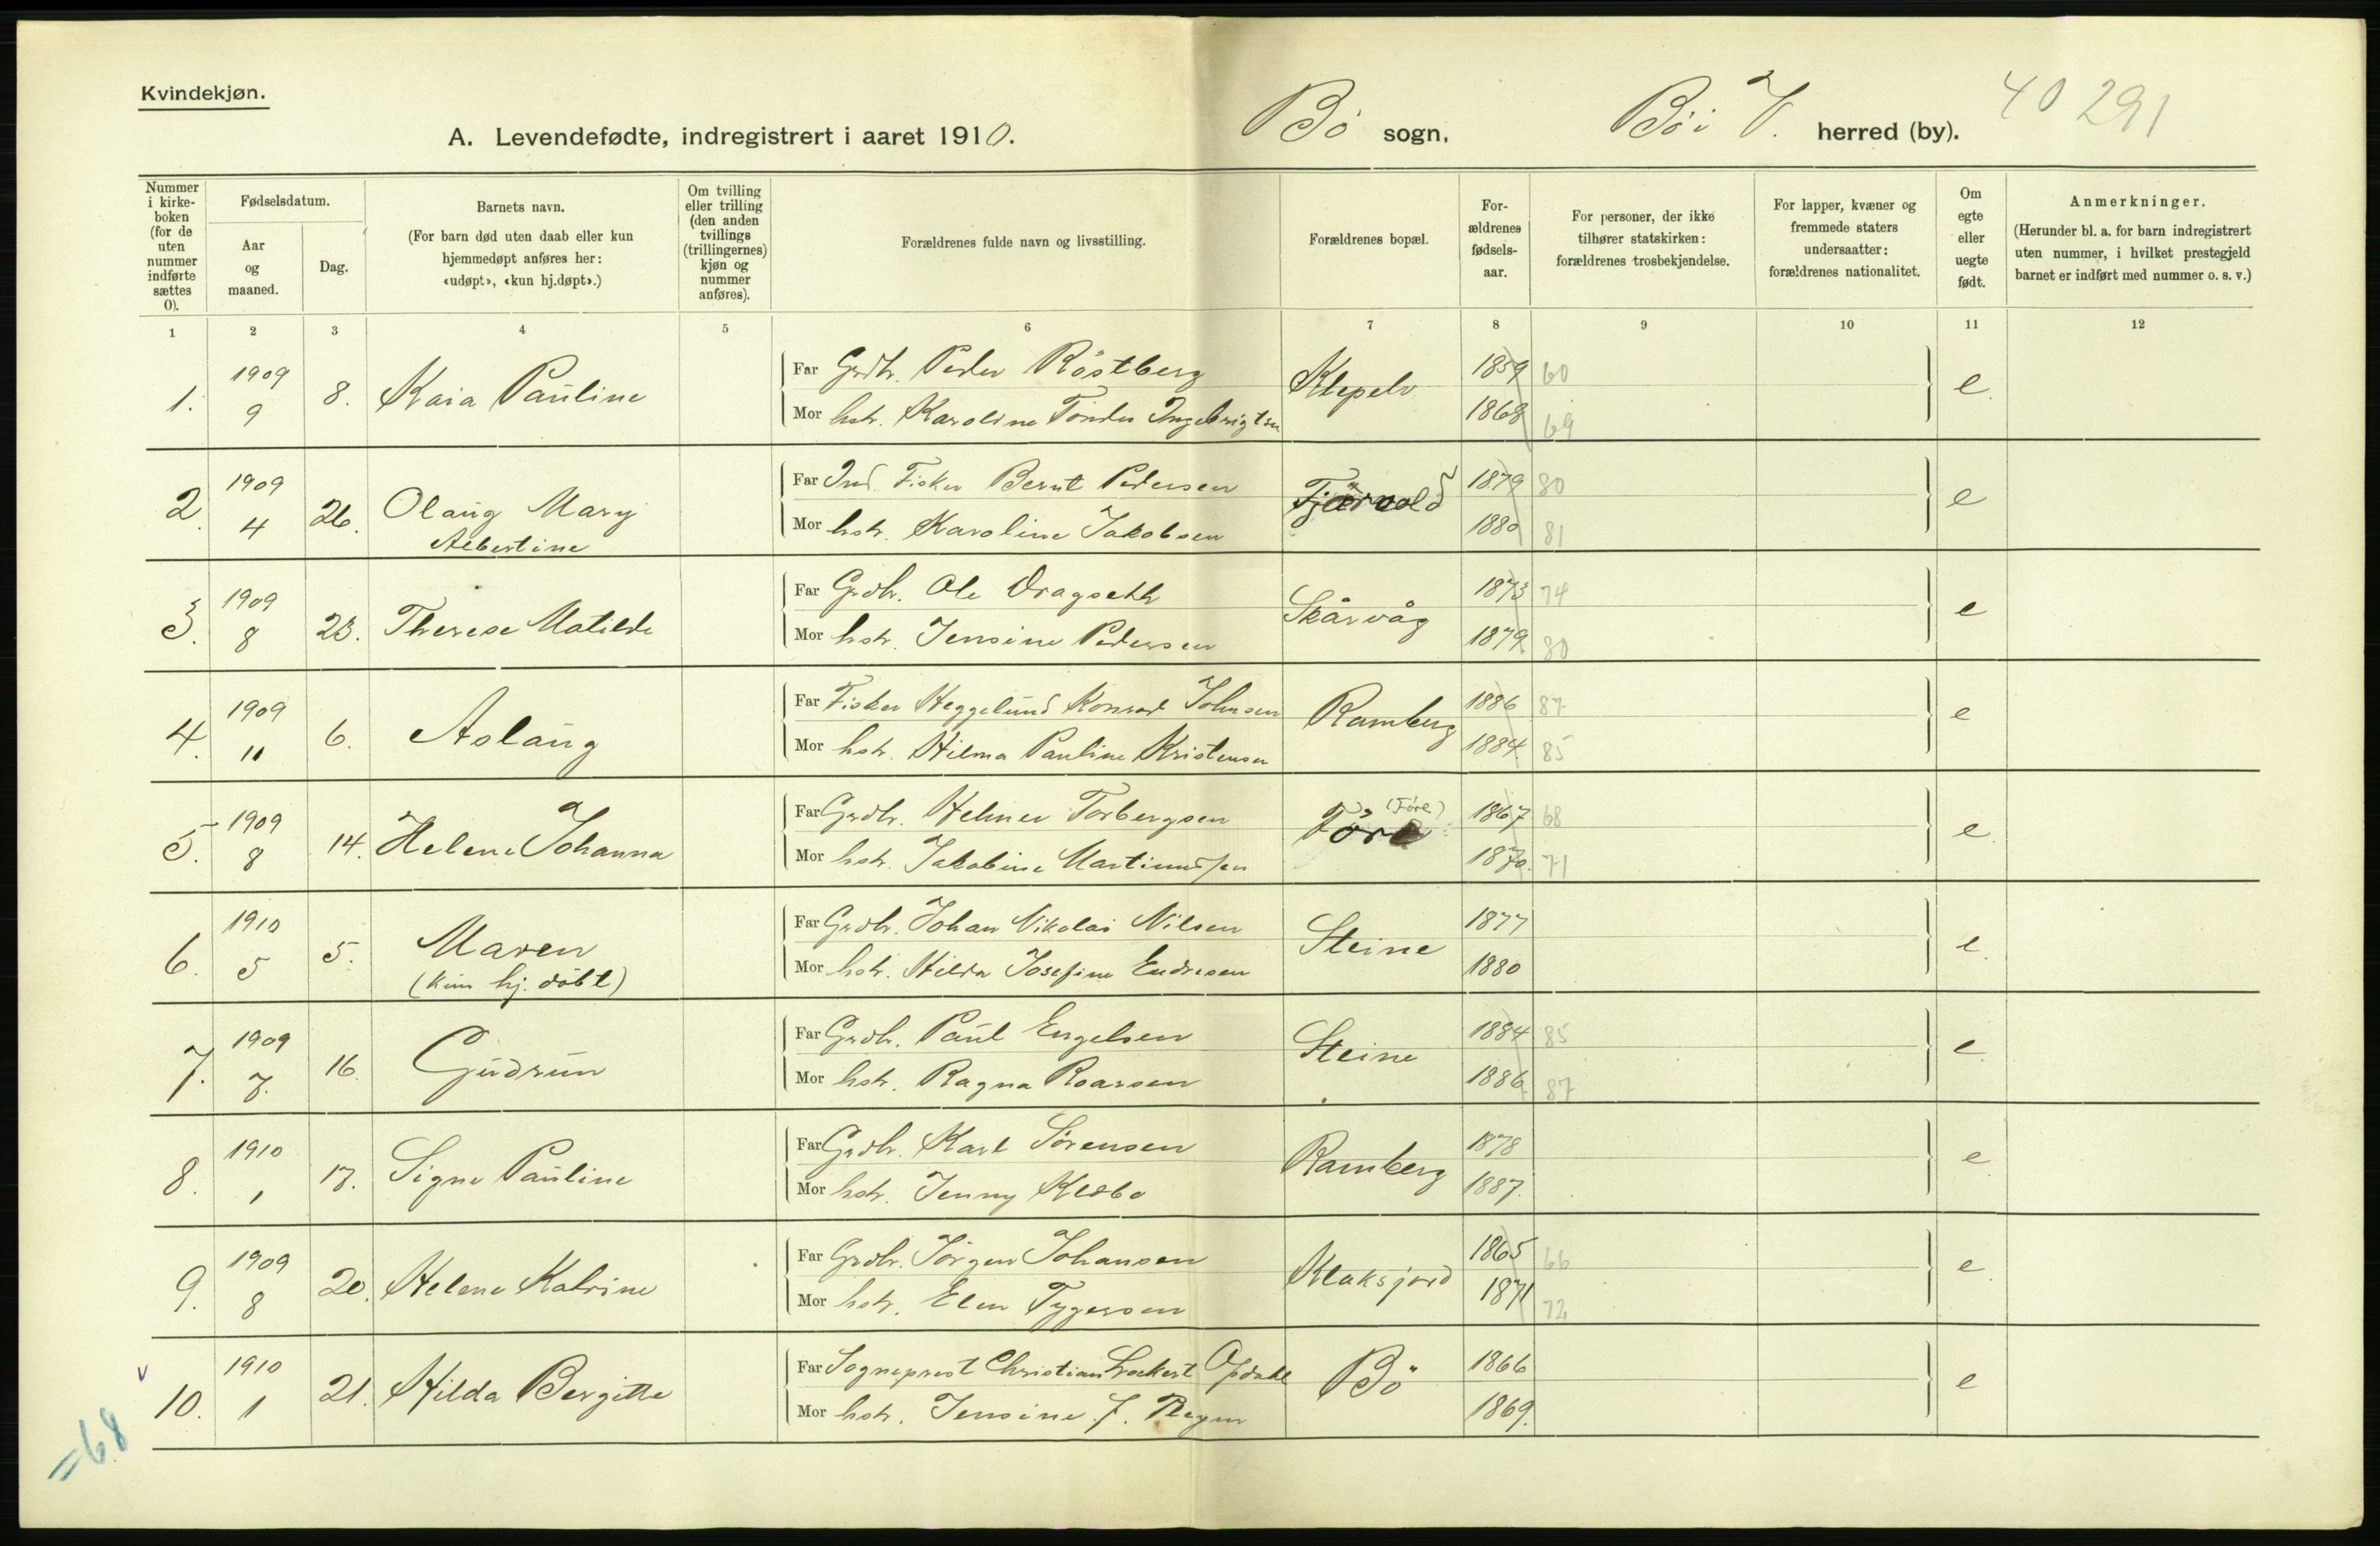 Kvindekjøn.
A. Levendefødte, indregistrert i aaret 1910.
Bö sogn, Bø i V. herred (by). 40 291
Nummer i kirkeboken (for de uten nummer indførte sættes 0).
Fødselsdatum.
Aar og maaned.
Dag.
Barnets navn.
(For barn død uten daab eller kun hjemmedøpt anføres her: «udøpt», «kun hj.døpt».)
Om tvilling eller trilling (den anden tvillings (trillingernes) kjøn og nummer anføres).
Forældrenes fulde navn og livsstilling.
Forældrenes bopæl.
Forældrenes fødselsaar.
For personer, der ikke tilhører statskirken: forældrenes trosbekjendelse.
For lapper, kvæner og fremmede staters undersaatter: forældrenes nationalitet.
Om egte eller uegte født.
Anmerkninger.
(Herunder bl. a. for barn indregistrert uten nummer, i hvilket prestegjeld barnet er indført med nummer o. s. v.)
1 2 3 4 5 6 7 8 9 10 11 12
1. 1909 9 8. Kaia Pauline
Far Grdbr. Peder Röstberg Klepelv 1859 60 e.
Mor hstr. Karoline Tönder Ingebrigtsen 1868 69
2. 1909 4 26. Olaug Mary Albertine
Far Ind. Fisker Bernt Pedersen Fjærvold 1879 80 e
Mor hstr. Karoline Jakobsen 1880 81
3. 1909 8 23. Therese Matilde
Far Grdbr. Ole Dragseth Skårvåg 1873 74 e
Mor hstr. Jensine Pedersen 1879 80
4. 1909 11 6. Aslaug
Far Fisker Heggelund Konrad Johnsen Ramberg 1886 87 e
Mor hstr. Hilma Pauline Kristensen 1884 85
5. 1909 8 14. Helene Johanna
Far Grdbr. Helmer Torbergsen Före (Före) 1867 68 e.
Mor hstr. Jakobine Martinussen 1870. 71
6. 1910 5 5. Maren (kun hj. döbt)
Far Grdbr. Johan Nikolai Nilsen Steine 1877 e.
Mor hstr. Hilda Josefine Endresen 1880
7. 1909 7. 16. Gudrun
Far Grdbr. Paul Engelsen Steine 1884 85 e.
Mor hstr. Ragna Roarsen 1886 87
8. 1910 1 17. Signe Pauline
Far Grdbr. Karl Sörensen Ramberg 1878 e
Mor hstr. Jenny Kledbo 1887.
9. 1909 8 20. Helene Katrine
Far Grdbr. Jörgen Johansen Klaksjord 1865 66 e.
Mor hstr. Elen Tygersen 1871 72
v 10. 1910 1 21. Hilda Bergitte
Far Sogneprest Christian Lockert Opdahl Bö 1866 e
Mor hstr. Jensine J. 1869.
=68